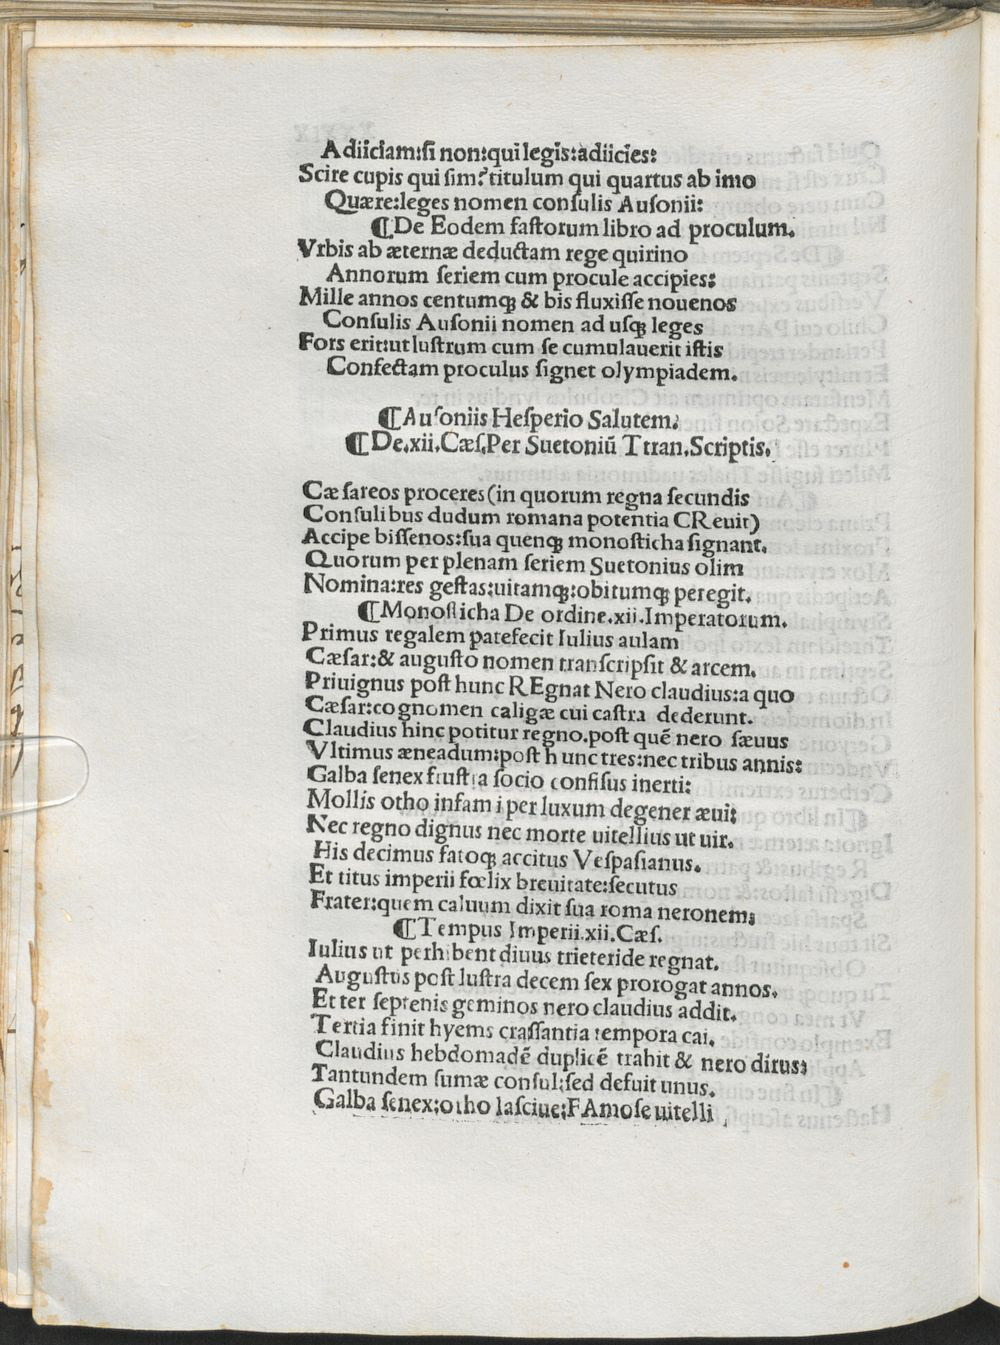 Adiiciam:ſi non:qui legis:adiicies:
Scire cupis qui ſim?titulum qui quartus ab imo
Quære:leges nomen conſulis Auſonii:
¶De Eodem faſtorum libro ad proculum.
Vrbis ab æternæ deductam rege quirino
Annorum ſeriem cum procule accipies:
Mille annos centumqꝫ & bis fluxiſſe nouenos
Conſulis Auſonii nomen ad uſqꝫ leges
Fors erit:ut luſtrum cum ſe cumulauerit iſtis
Confectam proculus ſignet olympiadem.
¶Auſoniis Heſperio Salutem.
¶De.xii.Cæſ.Per Suetoniū Ttran.Scriptis.
Cæſareos proceres(in quorum regna ſecundis
Conſulibus dudum romana potentia CReuit)
Accipe biſſenos:ſua quenqꝫ monoſticha ſignant.
Quorum per plenam ſeriem Suetonius olim
Nomina:res geſtas:uitamqꝫ:obitumqꝫ peregit.
¶Monoſticha De ordine.xii.Imperatorum.
Primus regalem patefecit Iulius aulam
Cæſar:& auguſto nomen tranſcripſit & arcem.
Priuignus poſt hunc REgnat Nero claudius:a quo
Cæſar:cognomen caligæ cui caſtra dederunt.
Claudius hinc potitur regno.poſt quē nero ſæuus
Vltimus æneadum:poſt hunc tres:nec tribus annis:
Galba ſenex fruſtra ſocio confiſus inerti:
Mollis otho infami per luxum degener æui:
Nec regno dignus nec morte uitellius ut uir.
His decimus fatoqꝫ accitus Veſpaſianus.
Et titus imperii fœlix breuitate:ſecutus
Frater:quem caluum dixit ſua roma neronem:
¶Tempus Imperii.xii.Cæſ.
Iulius ut perhibent diuus trieteride regnat.
Auguſtus poſt luſtra decem ſex prorogat annos.
Et ter ſeptenis geminos nero claudius addit.
Tertia finit hyems craſſantia tempora cai.
Claudius hebdomadē duplicē trahit & nero dirus:
Tantundem ſumæ conſul:ſed defuit unus.
Galba ſenex:otho laſciue:FAmoſe uitelli